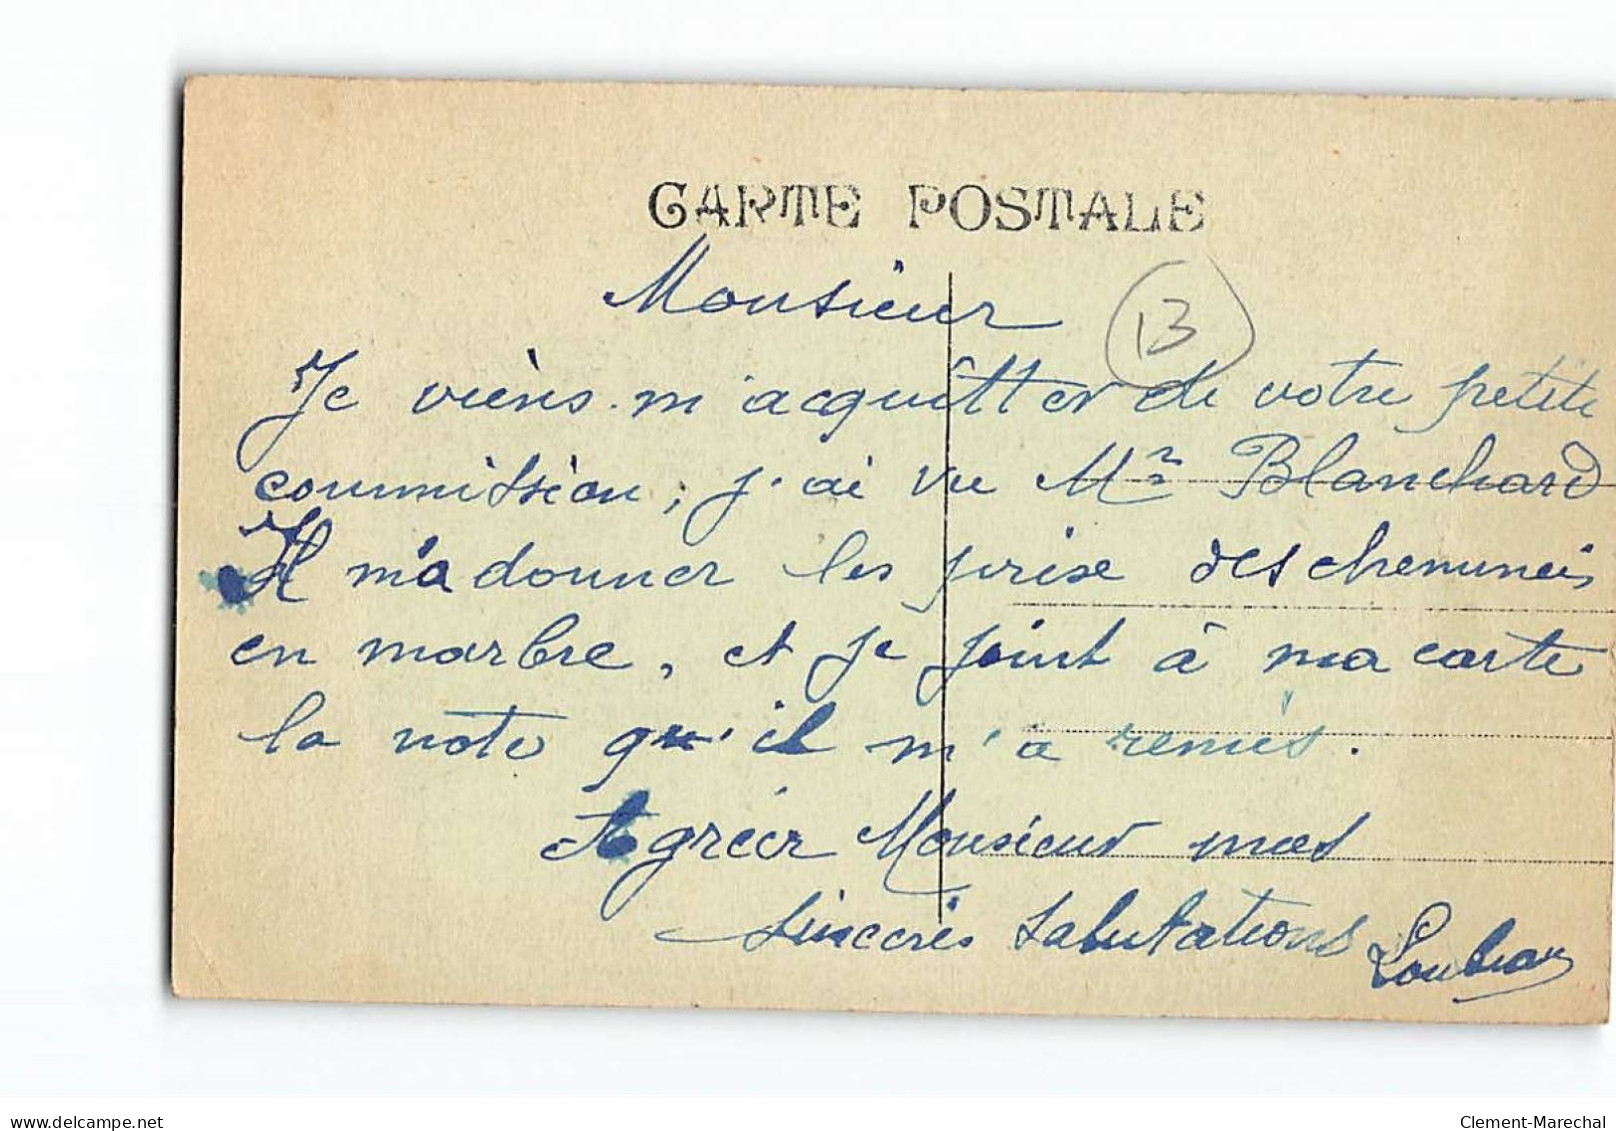 CARTE POSTALE
Monsieur
13
Je viens m'acquîtter de votre petite
commission, j'ai vu Mr Blanchard
Il m'a donner les prise des chemineis
en marbre, et je joint à ma carte
la note qu'il m'a remis.
Agréer Monsieur mes
sinceres salutations
delcampe.net
Clement-Marechal